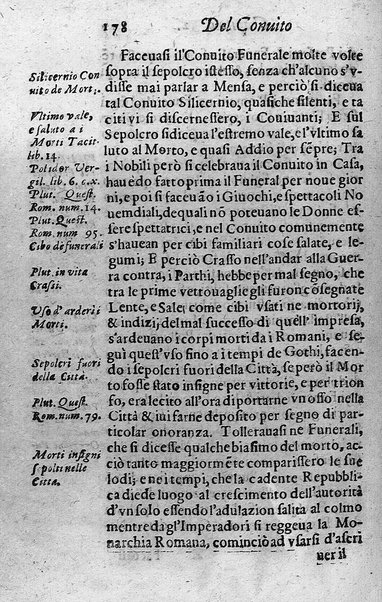 178 Del Conuito
Faceuasi il Conuito Funerale molte volte
sopra il sepolcro istesso, senza ch'alcuno s'v-
disse mai parlar a Mensa, e perciò si diceua
tal Conuito Silicernio, quasi che silenti, e ta
citi vi si discernessero, i Conuiuanti; E sul
Sepolcro si diceua l'estremo vale, e l'vltimo sa
luto al Morto, e quasi Addio per sẽpre; Tra
i Nobili però si celebraua il Conuito in Casa,
hauẽdo fatto prima il Funeral per noue gior
ni, e poi si faceuão i Giuochi, e spettacoli No
uemdiali, de quali nõ poteuano le Donne es-
sere spettatrici, e nel Conuito comunemente
s'hauean per cibi familiari cose salate, e le-
gumi; E perciò Crasso nell'andar alla Guer-
ra contra, i Parthi, hebbe per mal segno, che
tra le prime vettouaglie gli furon cõsegnate
Lente, e Sale, come cibi vsati ne mortorij,
& indizi, del mal successo di quell' impresa,
s'ardeuano i corpi morti da i Romani, e se-
guì quest'vso fino a i tempi de Gothi, facen-
do i sepolcri fuori della Città, se però il Mor
to fosse stato insigne per vittorie, e per trion
fo, era lecito all'ora di portarne vn osso nella
Città & iui farne deposito per segno di par-
ticolar onoranza. Tolleraua si ne Funerali,
che si dicesse qualche biasimo del morto, ac-
ciò tanto maggiormẽte comparissero le sue
lodi; e ne i tempi, che la cadente Repubbli-
ca diede luogo al crescimento dell'autorità
d'vn solo essendo l'adulazion salita al colmo
mentre da gl'Imperadori si reggeua la Mo-
narchia Romana, cominciò ad vsarsi d'ascri
uer il
Silicernio Con
uito de Morti.
Vltimo vale,
e saluto a i
Morti Tacit.
lib. 14.
Polidor Ver-
gil. lib. 6. c. x.
Plut. Quest.
Rom. num. 14.
Plut. Quest.
Rom. num 95.
Cibo de funerali
Plut. in vita
Crassi.
Vso d'arder i
Morti.
Sepolcri fuori
della Città.
Plut. Quest.
Rom. num. 79.
Morti insigni
spolti nelle
Città.